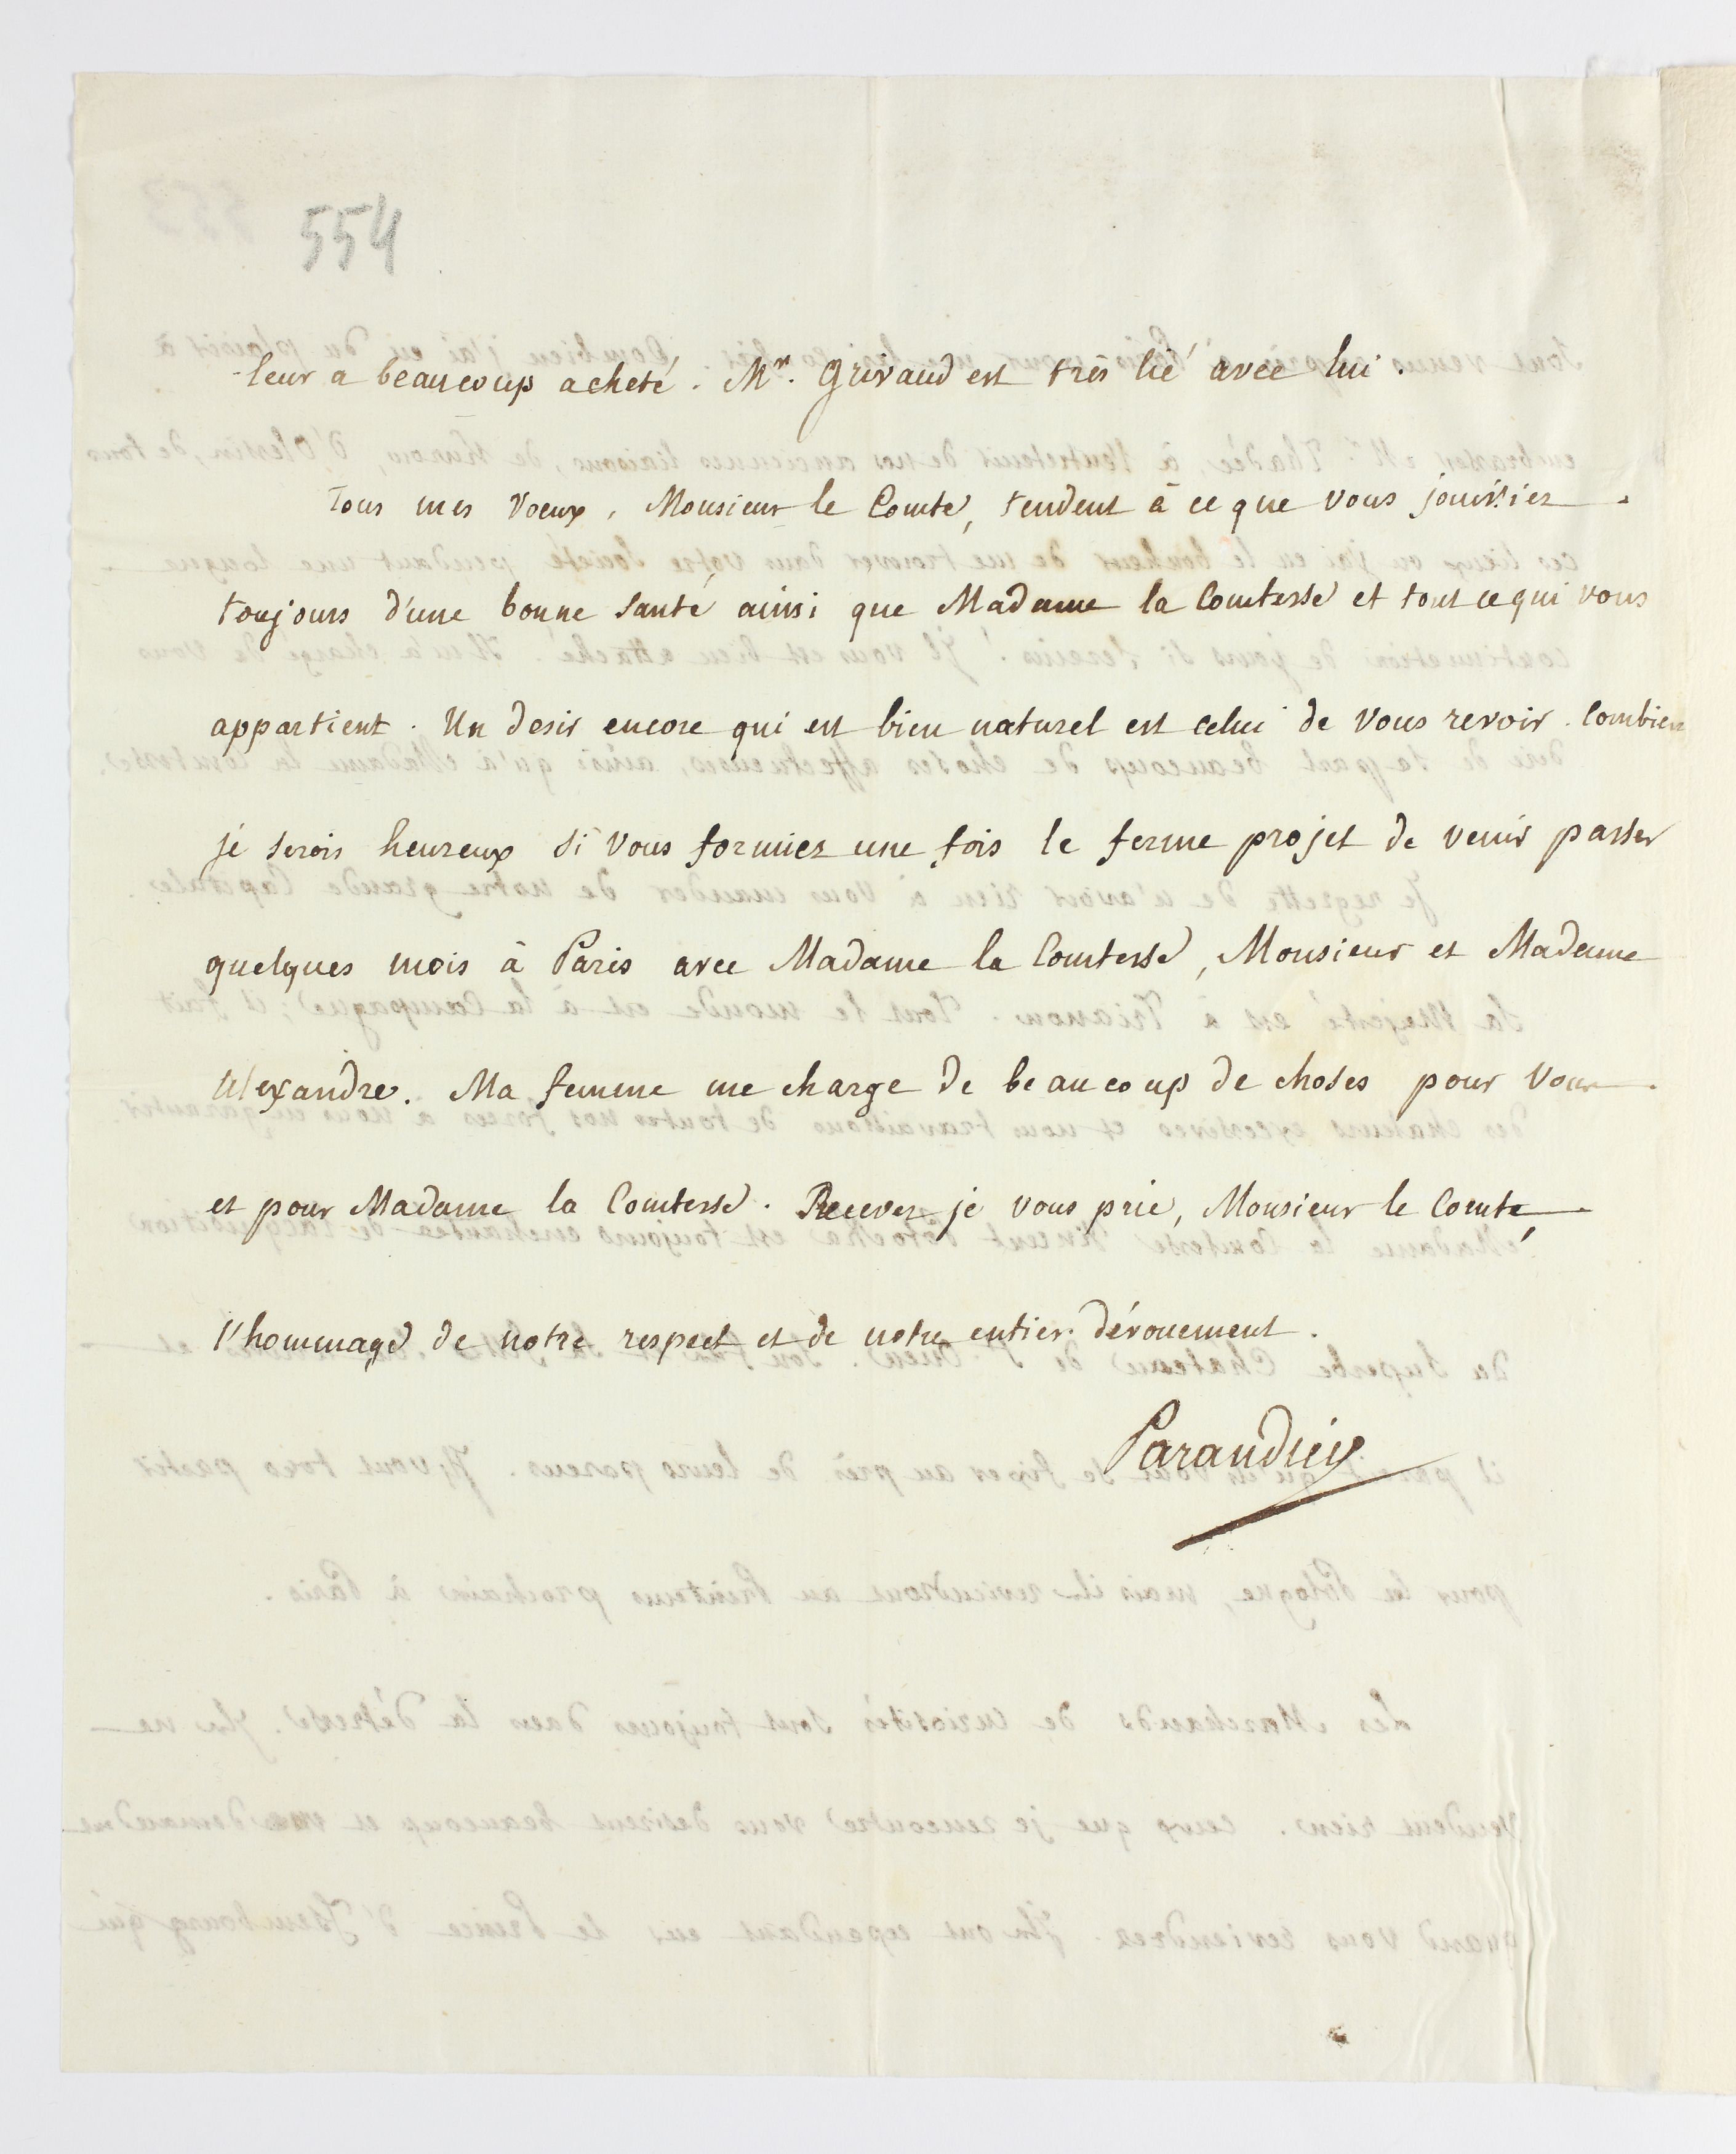 554
leur a beaucoup acheté. Mr. Grivaud est très lié avec lui.
Tous mes voeux, Monsieur le Comte, tendent à ce que vous jouissiez
toujours d'une bonne santé ainsi que Madame la Comtesse et tout ce qui vous
appartient. Un desir encore qui est bien naturel est celui de vous revoir. Combien
je serois heureux si vous formiez une fois le ferme projet de venir passer
quelques mois à Paris avec Madame la Comtesse, Monsieur et Madame
Alexandre. Ma femme me charge de beaucoup de choses pour vous
et pour Madame la Comtesse. Recevez je vous prie, Monsieur le Comte,
l'hommage de notre respect et de notre entier dévouement.
Parandier